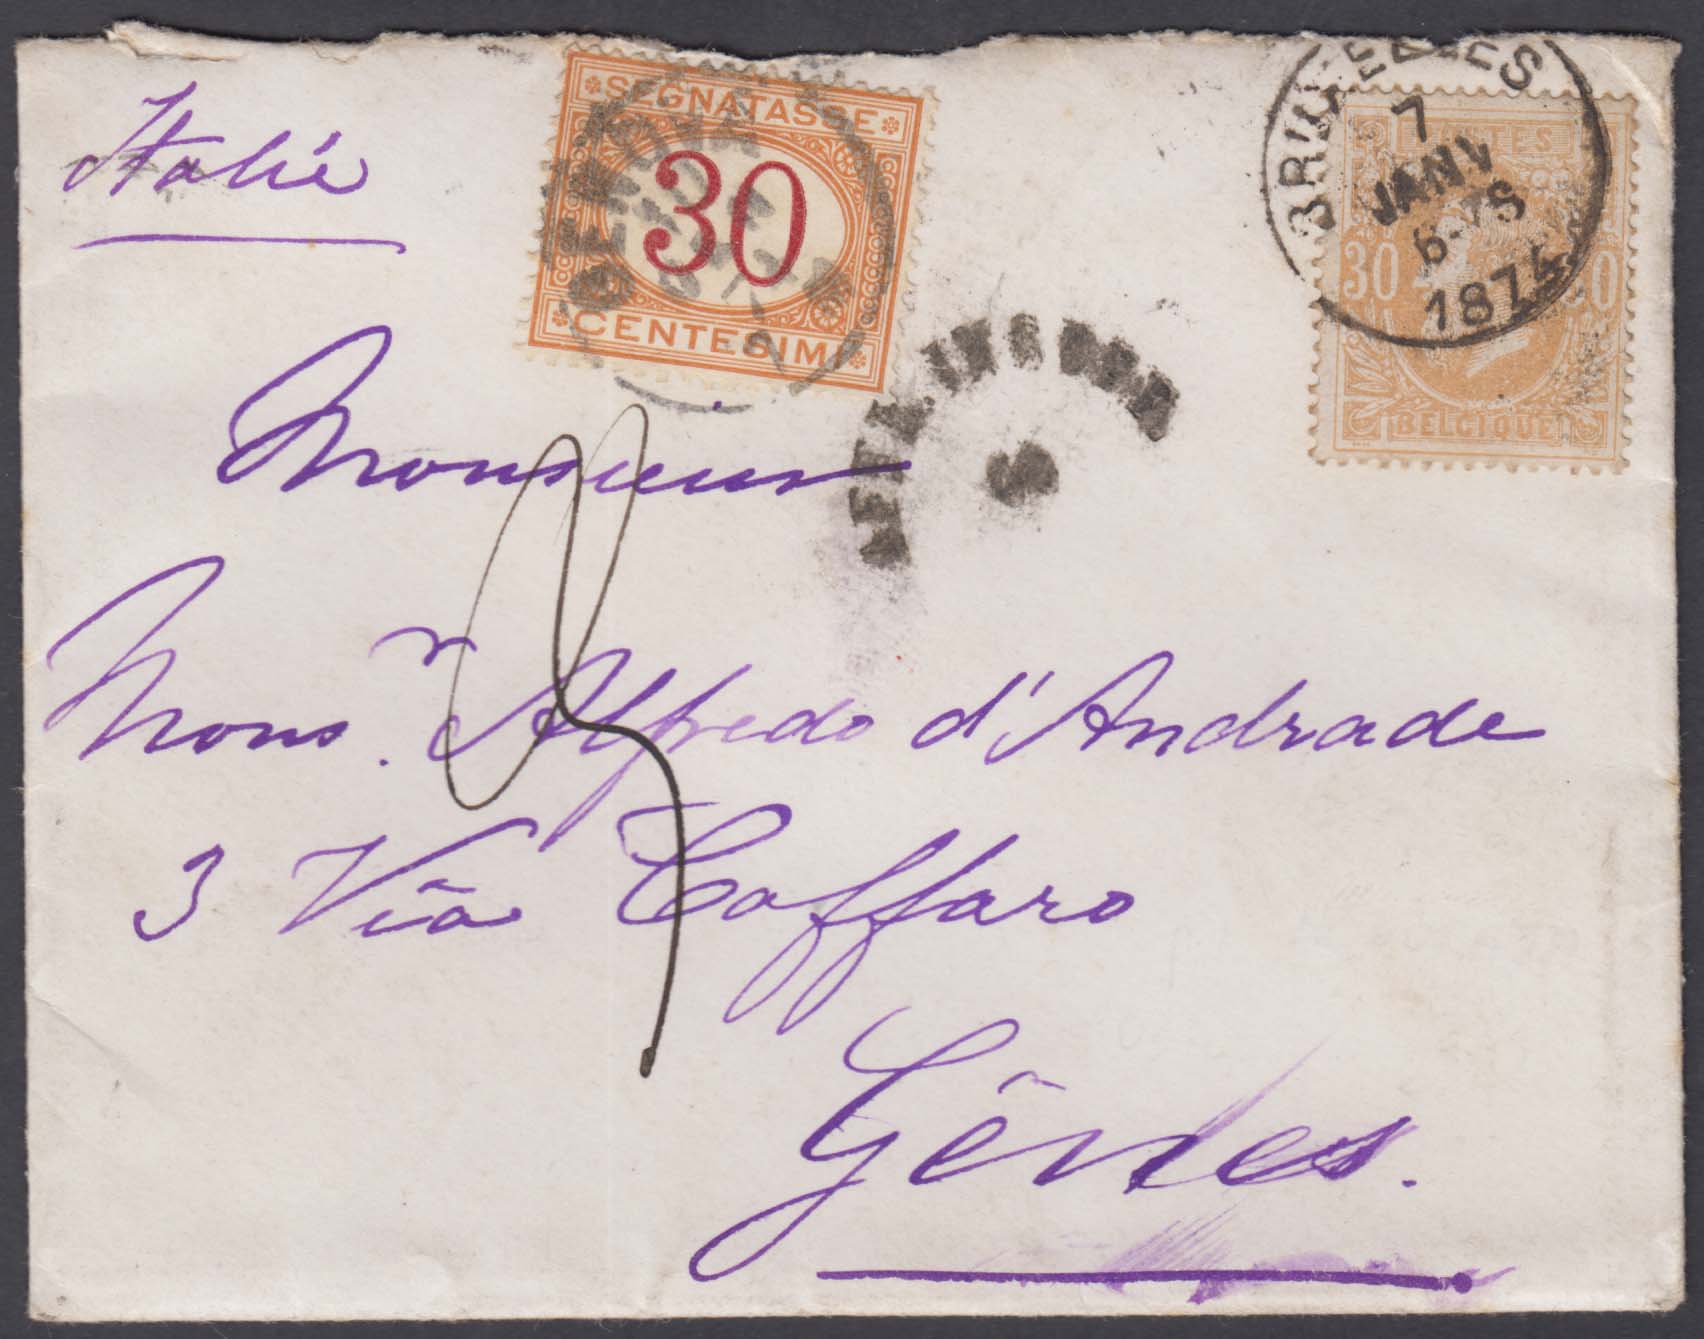 Italié
SEGNATASSE
30
CENTESIMI
GENOVA
BRUXELLES
7
JANV
6-7S
1874
POSTES
30
BELGIQUE
AFFR. INSUFF
Monsieur
Monsr. Alfredo d'Andrade
3 Via Caffaro
Gênes.